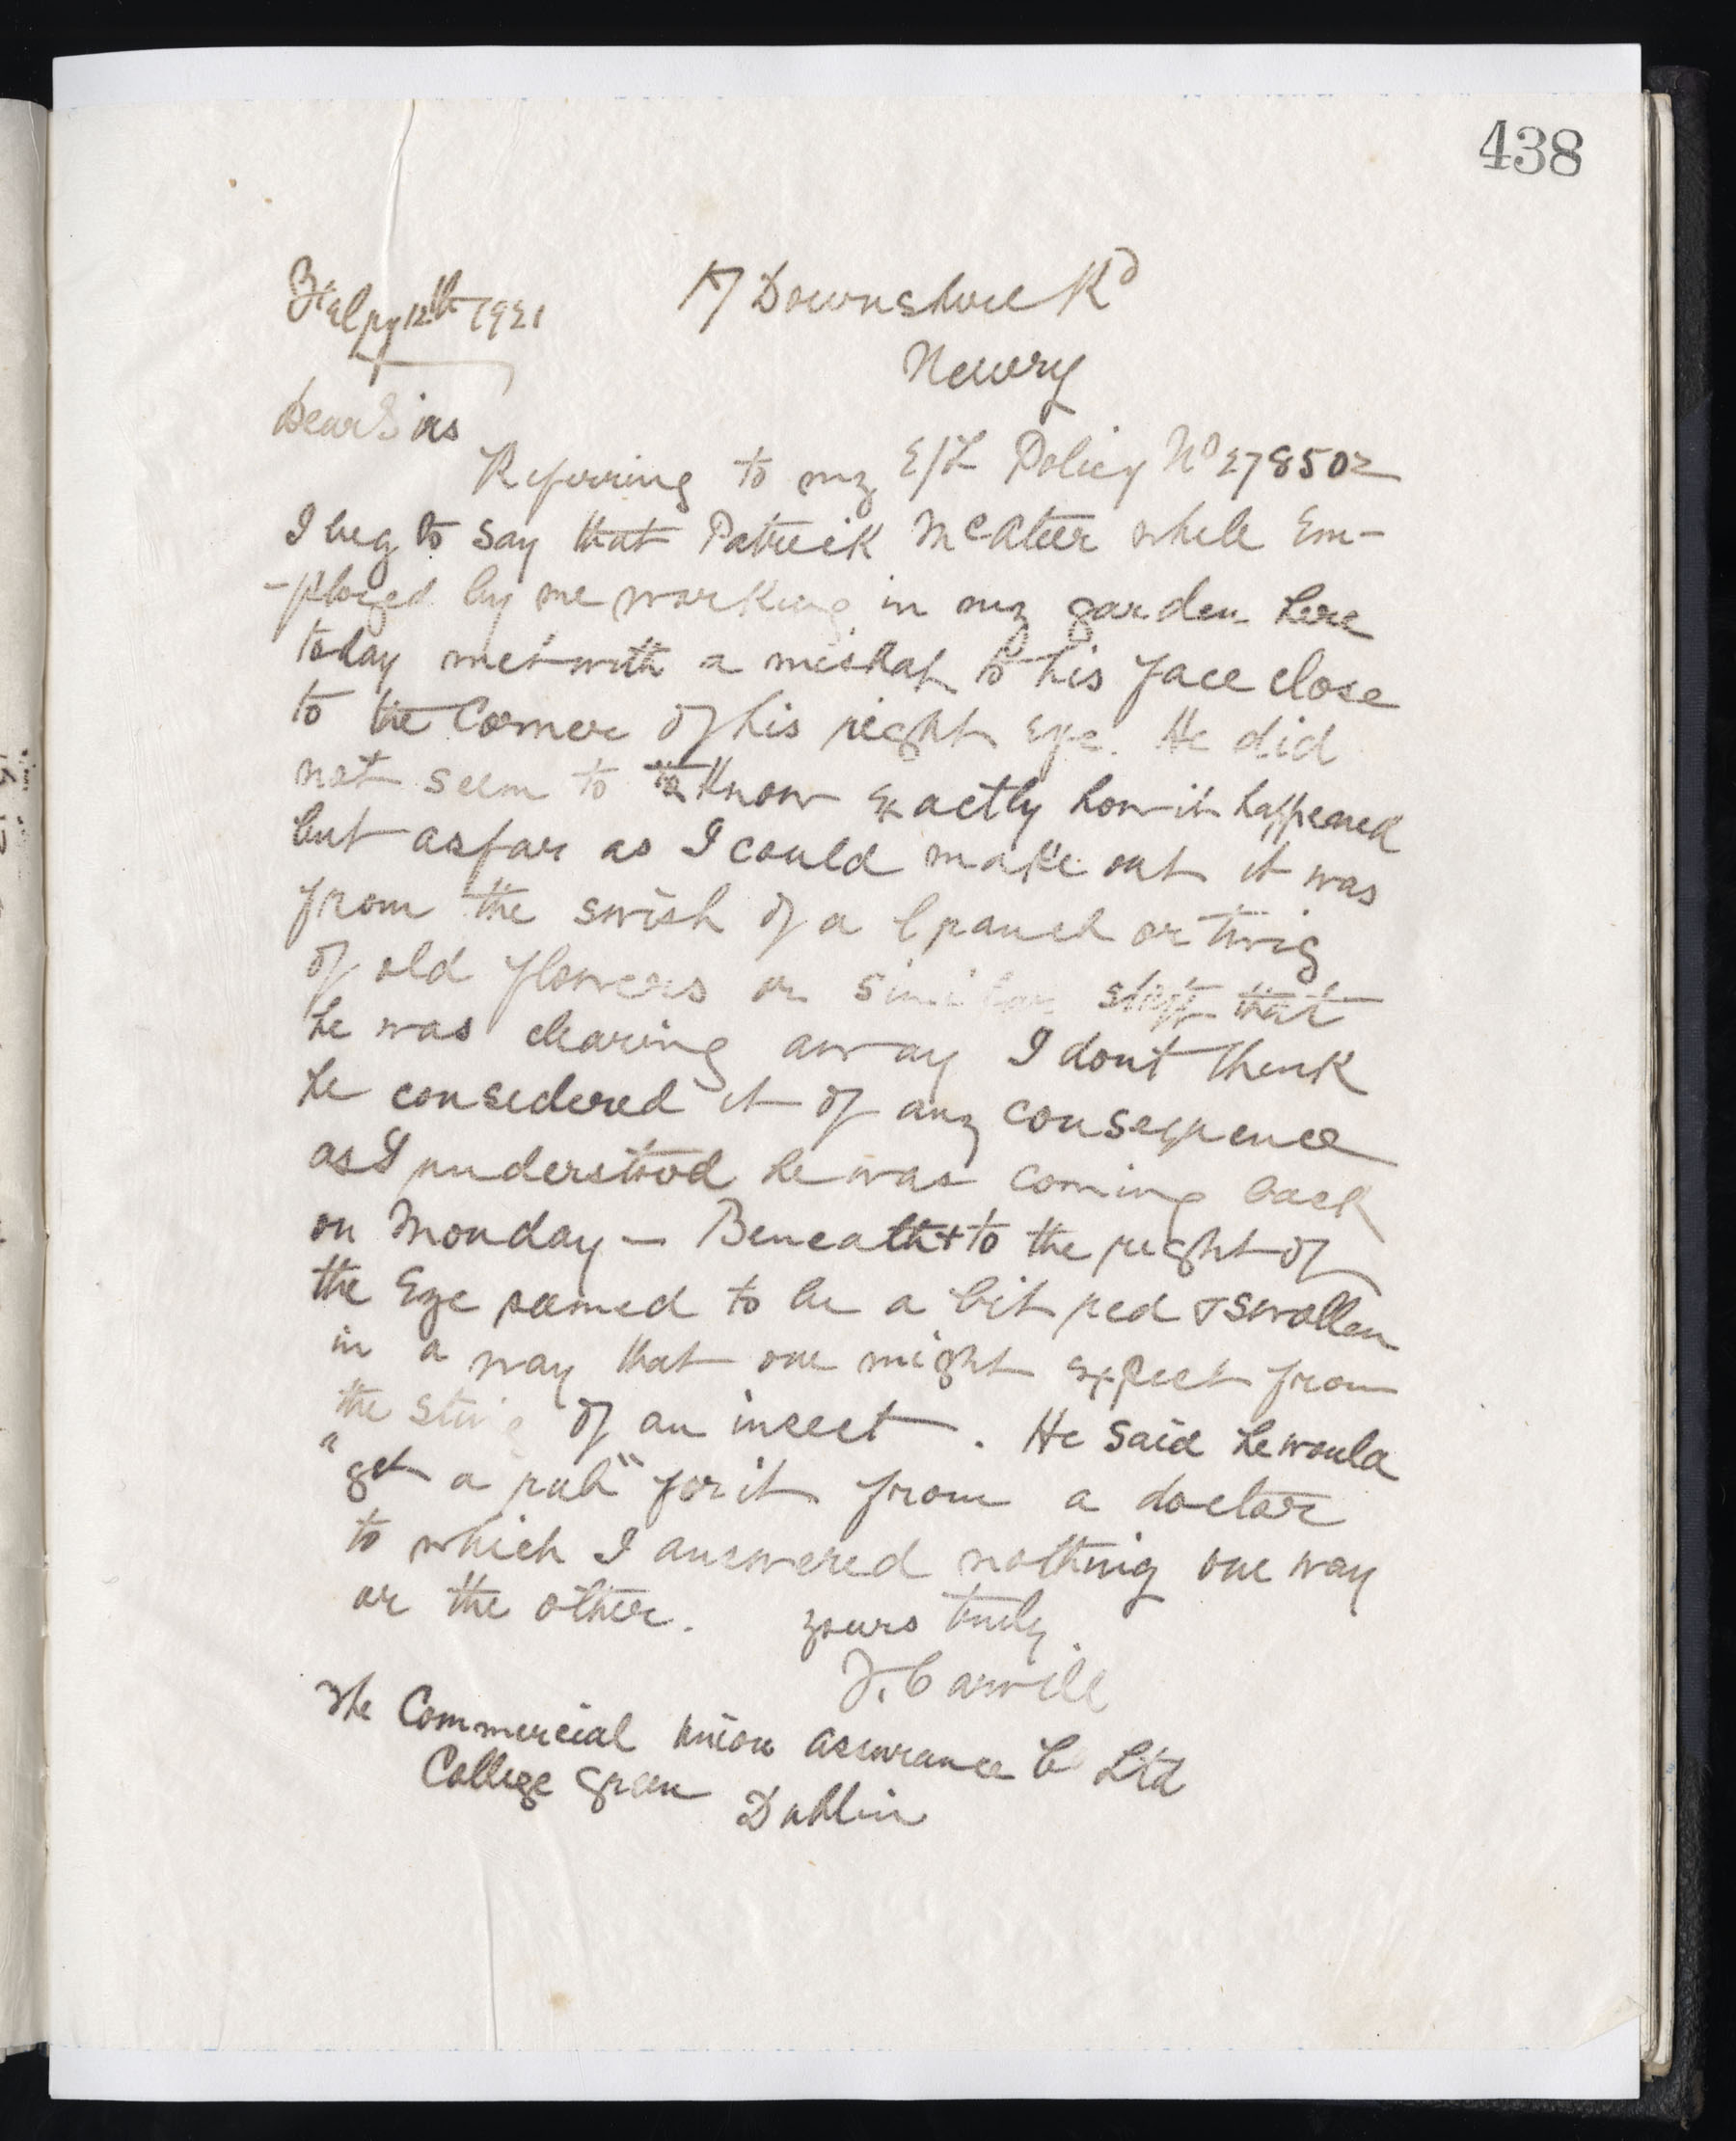 438
Febry 12th 1921
17 Downshire Rd
Newry
Dear Sirs
Referring to my E/L Policy No 278502
I beg to say that Patrick McAteer while Em-
-ployed by me working in my garden here
today met with a mishap to his face close
to the Corner of his right Eye. He did
not seem to to know Exactly how it happened
but as far as I could make out it was
from the swish of a branch or twig
of old flowers or similar stuff that
he was clearing away I dont think
he considered it of any consequence
as I understood he was coming back
on Monday — Beneath & to the right of
the Eye seemed to be a bit red & swollen
in a way that one might expect from
the sting of an insect. He said he would
"get a rub" for it from a doctor
to which I answered nothing one way
or the other. yours truly
J. Carvill
The Commercial Union Assurance Co Ltd
College Green
Dublin